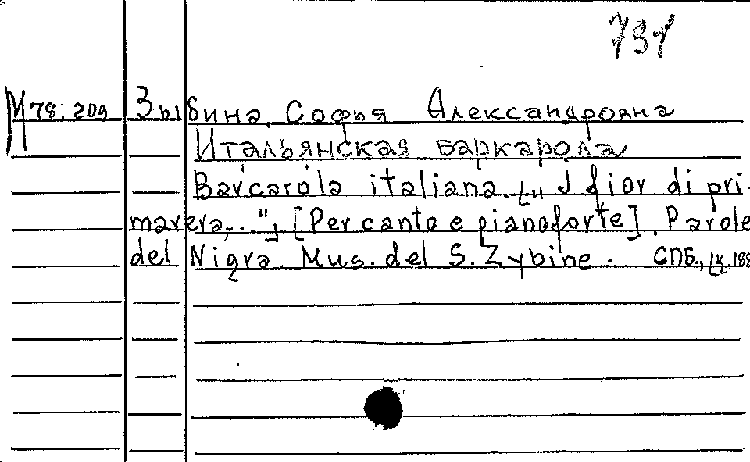 731
М 78.209 Зыбина, Софья Александровна
Итальянская баркарола
Barcarola italiana. ["I fior di pri-
mavera,..."], [Per canto e pianoforte]. Parole
del Nigra. Mus. del S. Zybine. СПБ., [ц. 188